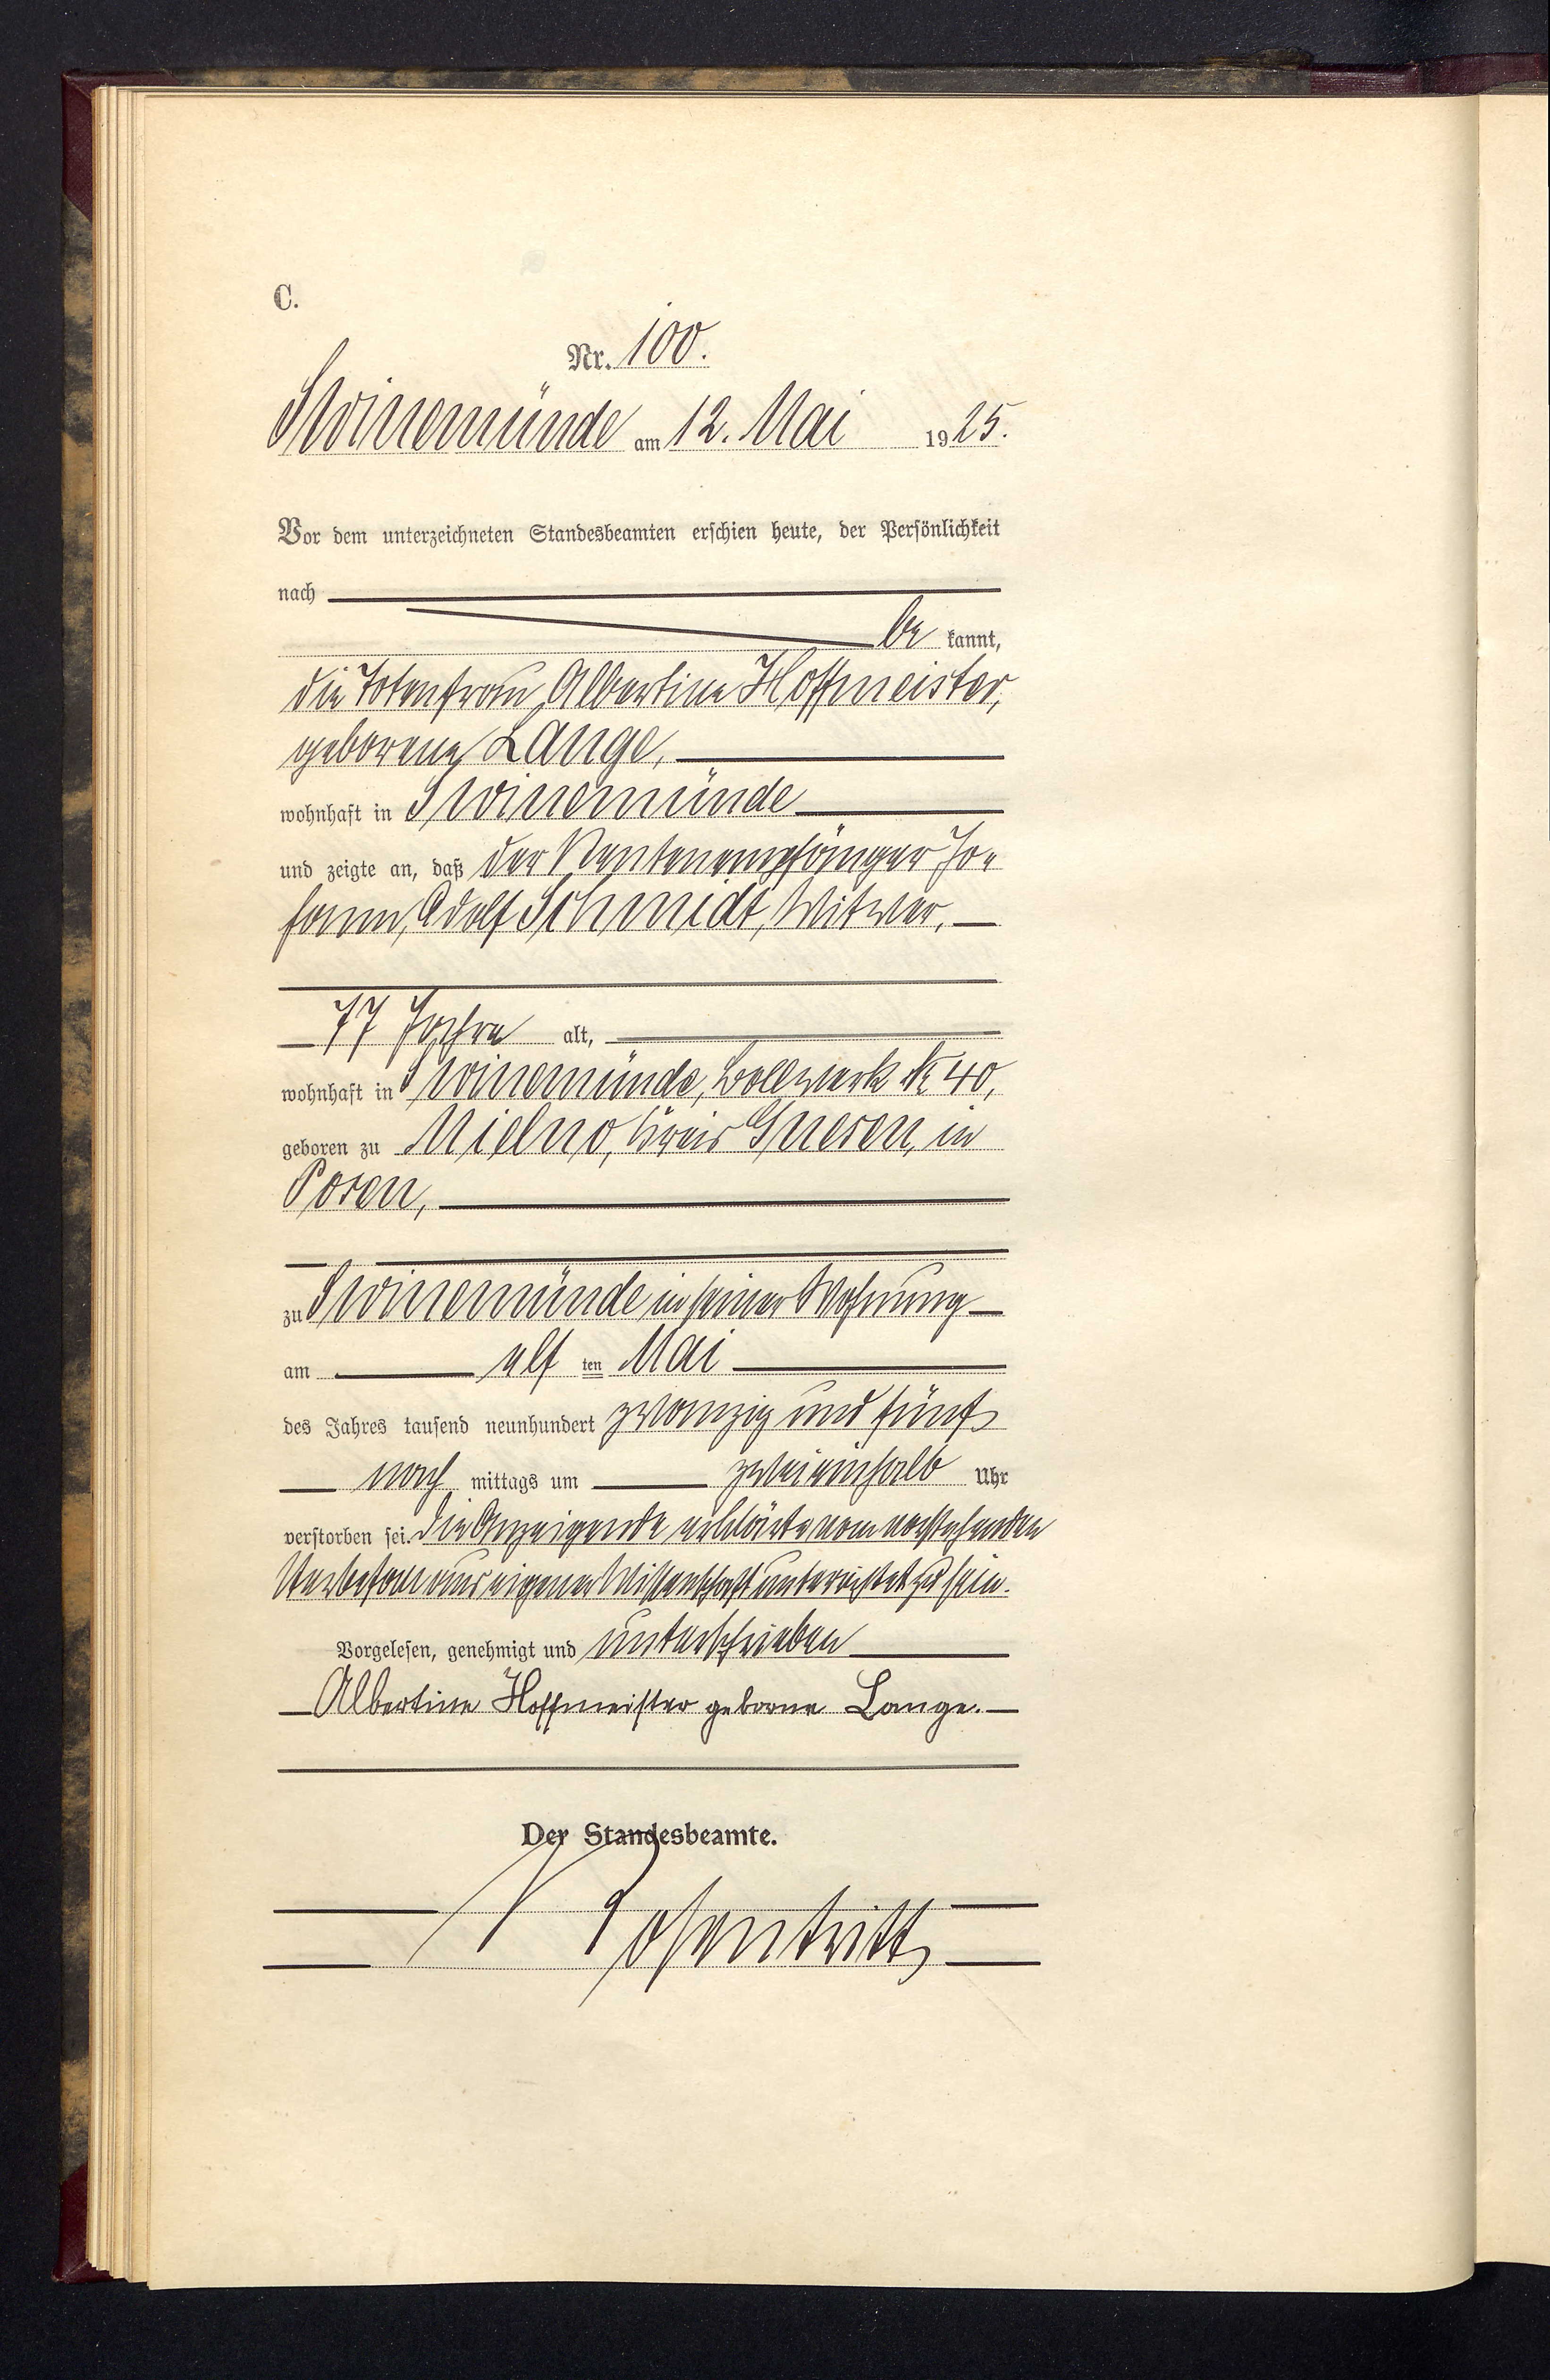 C.
Nr. 100.
Swinemünde am 12. Mai 1925.
Vor dem unterzeichneten Standesbeamten erschien heute, der Persönlichkeit
nach
be kannt,
die Totenfrau Albertine Hoffmeister,
geborene Lange,
wohnhaft in Swinemünde
und zeigte an, daß der Rentenempfänger Jo-
hann, Adolf Schmidt, Witwer,
77 Jahre alt,
wohnhaft in Swinemünde, Bollwerk № 40,
geboren zu Mielno, Kreis Gnesen, in
Posen,
zu Swinemünde in seiner Wohnung
am elf ten Mai
des Jahres tausend neunhundert zwanzig und fünf
nach mittags um zweieinhalb Uhr
verstorben sei. Die Anzeigende erklärte, vom vorstehenden
Sterbefall aus eigener Wissenschaft unterrichtet zu sein.
Vorgelesen, genehmigt und unterschrieben
Albertine Hoffmeister geborne Lange.
Der Standesbeamte.
Rosentritt